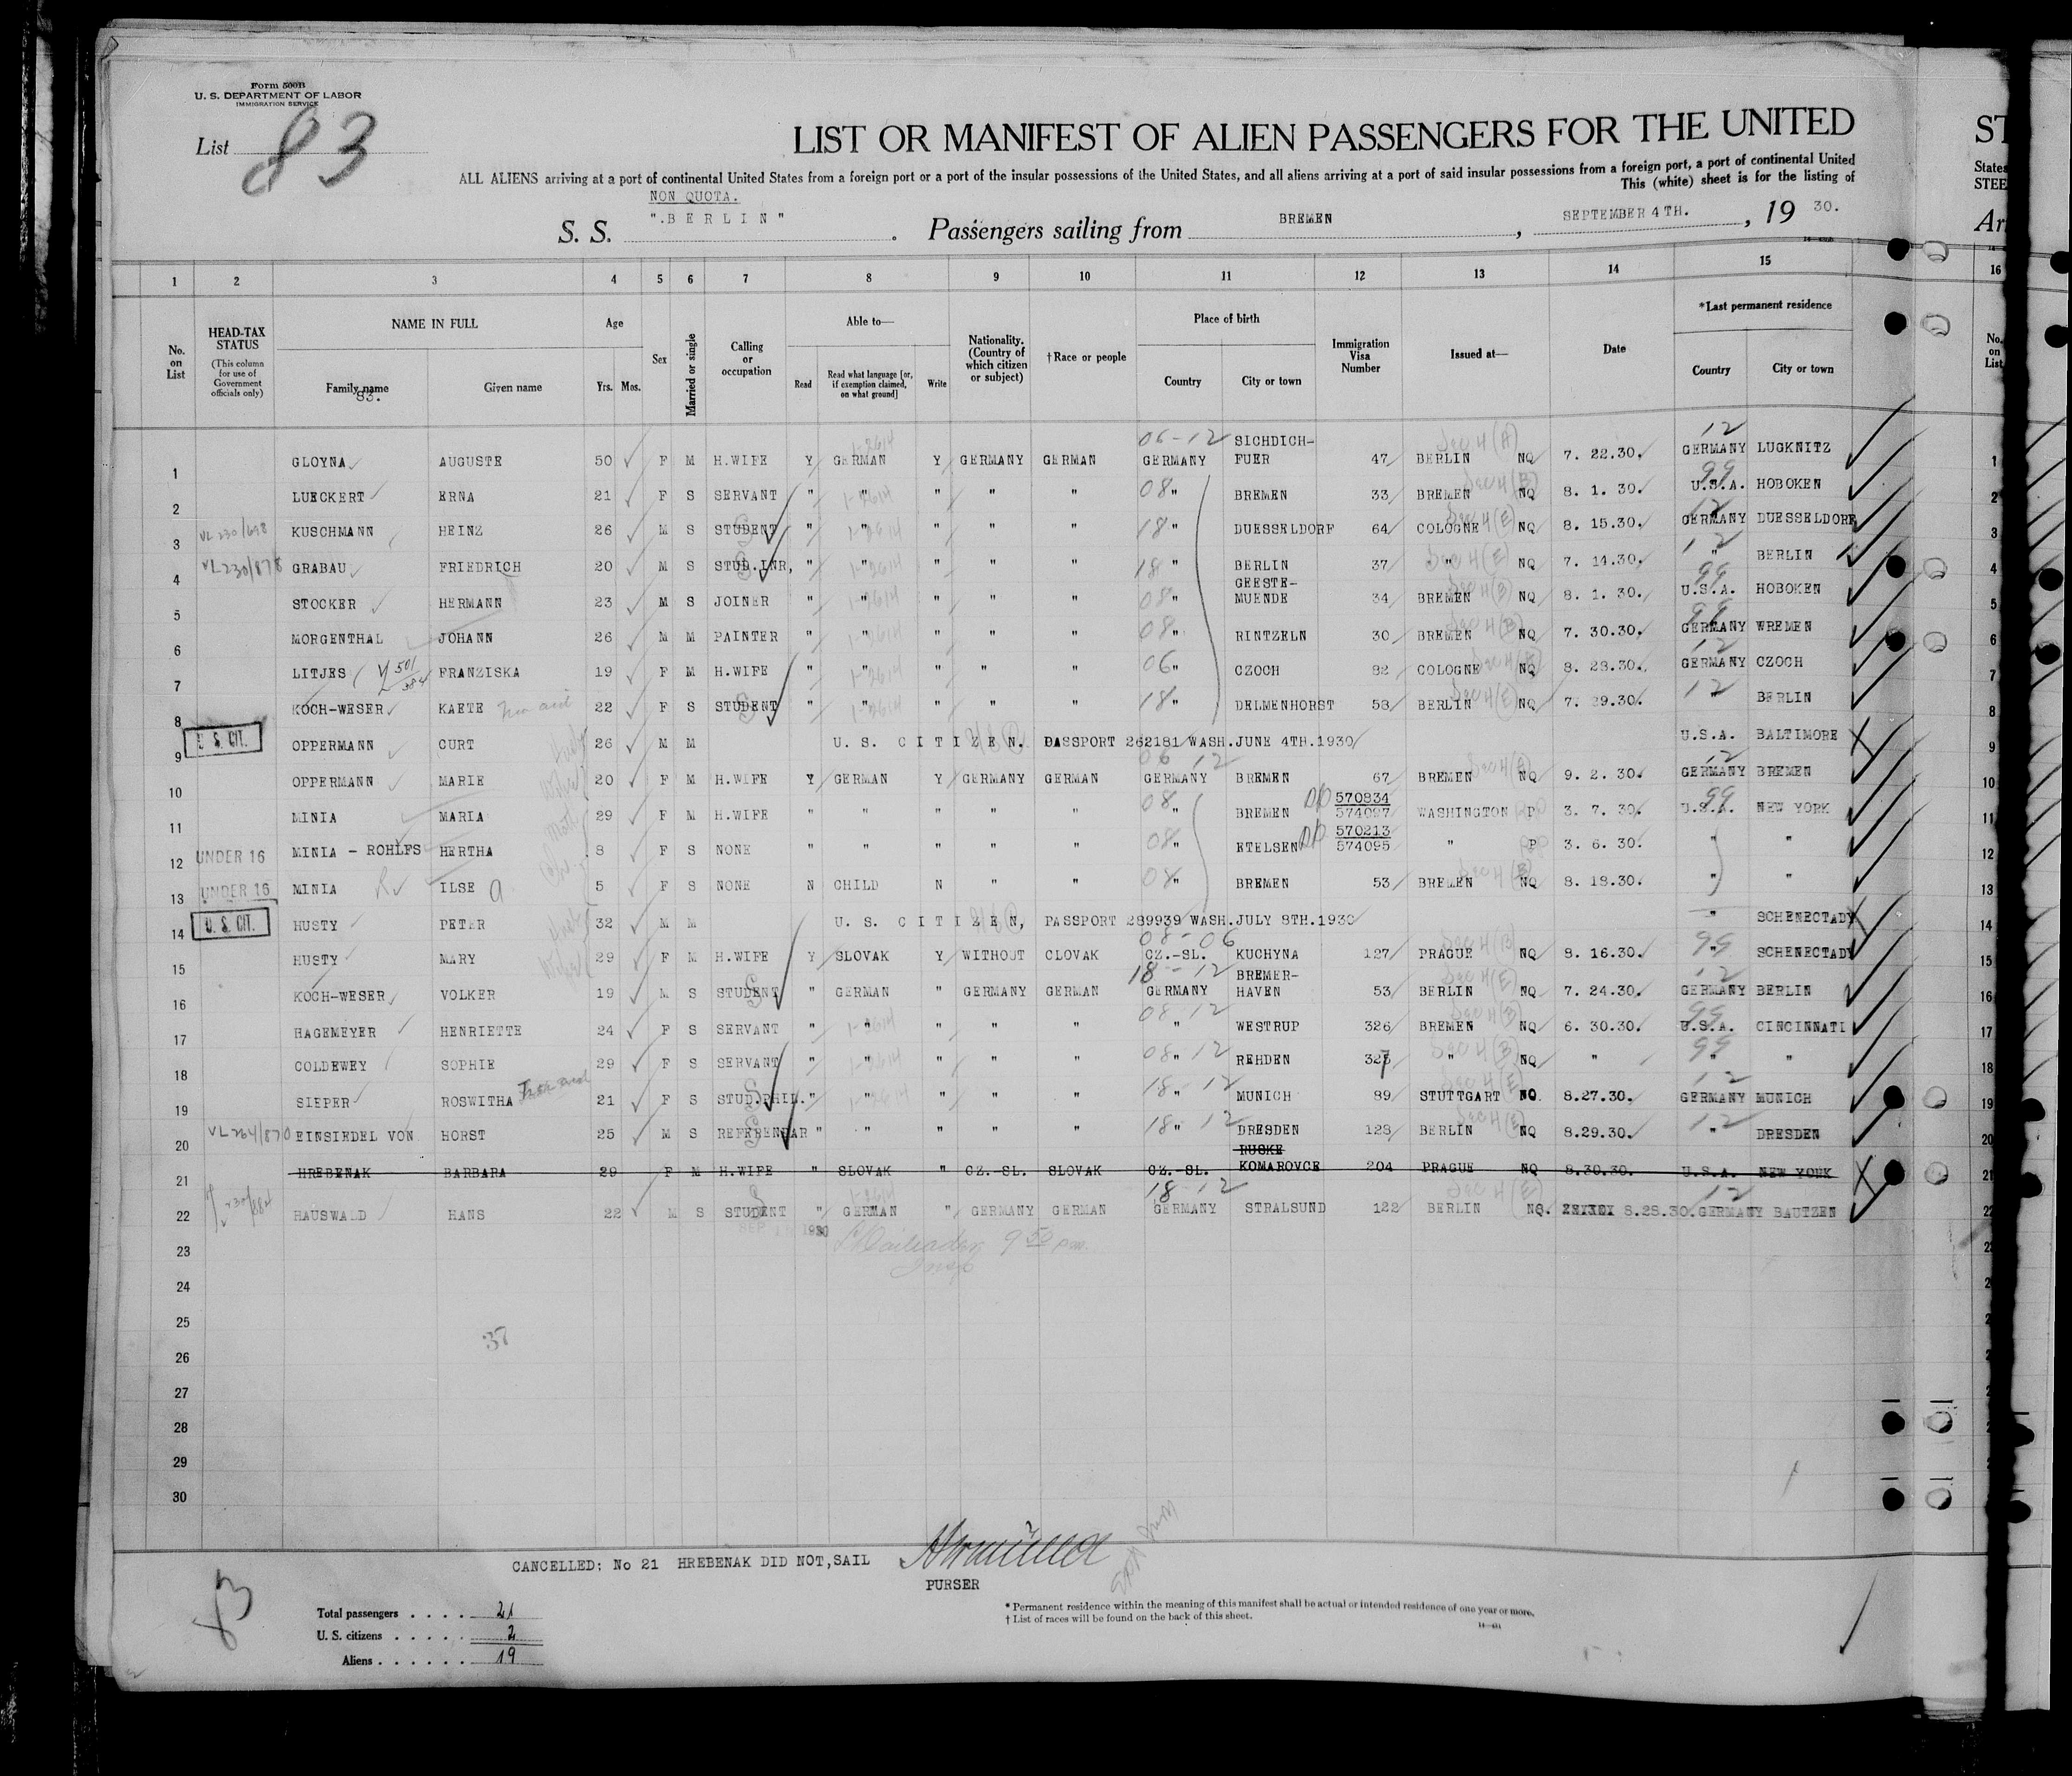 Form 500B
U. S. DEPARTMENT OF LABOR
IMMIGRATION SERVICE
List 83
LIST OR MANIFEST OF ALIEN PASSENGERS FOR THE UNITED
ST
ALL ALIENS arriving at a port of continental United States from a foreign port or a port of the insular possessions of the United States, and all aliens arriving at a port of said insular possessions from a foreign port, a port of continental United
States
This (white) sheet is for the listing of
STEE
NON QUOTA.
S. S. ".BERLIN". Passengers sailing from BREMEN, SEPTEMBER 4TH., 19 30.
Ar
1 2 3 4 5 6 7 8 9 10 11 12 13 14 15 16
No. on List
HEAD-TAX STATUS
(This column for use of Government officials only)
NAME IN FULL
Family name
83.
Given name
Age
Yrs. Mos.
Sex
Married or single
Calling or occupation
Able to—
Read
Read what language [or, if exemption claimed, on what ground]
Write
Nationality. (Country of which citizen or subject)
†Race or people
Place of birth
Country
City or town
Immigration Visa Number
Issued at—
Date
*Last permanent residence
Country
City or town
No. on List
1 GLOYNA AUGUSTE 50 F M H.WIFE Y GERMAN Y GERMANY GERMAN 06-12 GERMANY SICHDICH-FUER 47 BERLIN NQ 7. 22.30. 12 GERMANY LUGKNITZ 1
2 LUECKERT ERNA 21 F S SERVANT " " " " " 08 " BREMEN 33 BREMEN NQ 8. 1. 30. 99 U.S.A. HOBOKEN 2
3 VL 230/698 KUSCHMANN HEINZ 26 M S STUDENT " " " " " 18 " DUESSELDORF 64 COLOGNE NQ 8. 15.30. 12 GERMANY DUESSELDORF 3
4 VL230/878 GRABAU FRIEDRICH 20 M S STUD.INR, " " " " " 18 " BERLIN 37 " NQ 7. 14.30. 12 " BERLIN 4
5 STOCKER HERMANN 23 M S JOINER " " " " " 08 " GEESTE-MUENDE 34 BREMEN NQ 8. 1. 30. 99 U.S.A. HOBOKEN 5
6 MORGENTHAL JOHANN 26 M M PAINTER " " " " " 08 " RINTZELN 30 BREMEN NQ 7. 30.30. 99 GERMANY WREMEN 6
7 LITJES FRANZISKA 19 F M H.WIFE " " " " " 06 " CZOCH 82 COLOGNE NQ 8. 28.30. 12 GERMANY CZOCH 7
8 KOCH-WESER KAETE 22 F S STUDENT " " " " " 18 " DELMENHORST 58 BERLIN NQ 7. 29.30. 12 BERLIN 8
9 U. S. CIT. OPPERMANN CURT 26 M M U. S. CITIZEN. PASSPORT 262181 WASH.JUNE 4TH.1930 U.S.A. BALTIMORE 9
10 OPPERMANN MARIE 20 F M H.WIFE Y GERMAN Y GERMANY GERMAN 06 12 GERMANY BREMEN 67 BREMEN NQ 9. 2. 30. 12 GERMANY BREMEN 10
11 MINIA MARIA 29 F M H.WIFE " " " " " 08 " BREMEN 570834 574097 WASHINGTON P 3. 7. 30. 99 U.S.A. NEW YORK 11
12 UNDER 16 MINIA - ROHLFS HERTHA 8 F S NONE " " " " " 08 " ETELSEN 570213 574095 " P 3. 6. 30. " " 12
13 UNDER 16 MINIA ILSE 5 F S NONE N CHILD N " " 08 " BREMEN 53 BREMEN NQ 8. 18.30. " " 13
14 U. S. CIT. HUSTY PETER 32 M M U. S. CITIZEN, PASSPORT 289939 WASH.JULY 8TH.1930 " SCHENECTADY 14
15 HUSTY MARY 29 F M H.WIFE Y SLOVAK Y WITHOUT CLOVAK 08-06 CZ.-SL. KUCHYNA 127 PRAGUE NQ 8. 16.30. 99 " SCHENECTADY 15
16 KOCH-WESER VOLKER 19 M S STUDENT " GERMAN " GERMANY GERMAN 18-12 GERMANY BREMER-HAVEN 53 BERLIN NQ 7. 24.30. 12 GERMANY BERLIN 16
17 HAGEMEYER HENRIETTE 24 F S SERVANT " " " " " 08-12 " WESTRUP 326 BREMEN NQ 6. 30.30. 99 U.S.A. CINCINNATI 17
18 COLDEWEY SOPHIE 29 F S SERVANT " " " " " 08-12 " REHDEN 327 " NQ " 99 " " 18
19 SIEPER ROSWITHA 21 F S STUD.PHIL. " " " " " 18-12 " MUNICH 89 STUTTGART NQ. 8.27.30. 12 GERMANY MUNICH 19
20 VL264/870 EINSIEDEL VON HORST 25 M S REFERENDAR " " " " " 18-12 " DRESDEN 128 BERLIN NQ 8.29.30. 12 " DRESDEN 20
21 HREBENAK BARBARA 29 F M H.WIFE " SLOVAK " CZ.-SL. SLOVAK CZ.-SL. RUSKE KOMAROVCE 204 PRAGUE NQ 8.30.30. U.S.A. NEW YORK 21
22 HAUSWALD HANS 22 M S STUDENT " GERMAN " GERMANY GERMAN 18-12 GERMANY STRALSUND 122 BERLIN NQ. 8.28.30. 12 GERMANY BAUTZEN 22
23
24
25
26
27
28
29
30
37
CANCELLED: No 21 HREBENAK DID NOT,SAIL
PURSER
83
Total passengers . . . . 21
U. S. citizens . . . . . 2
Aliens . . . . . . 19
* Permanent residence within the meaning of this manifest shall be actual or intended residence of one year or more.
† List of races will be found on the back of this sheet.